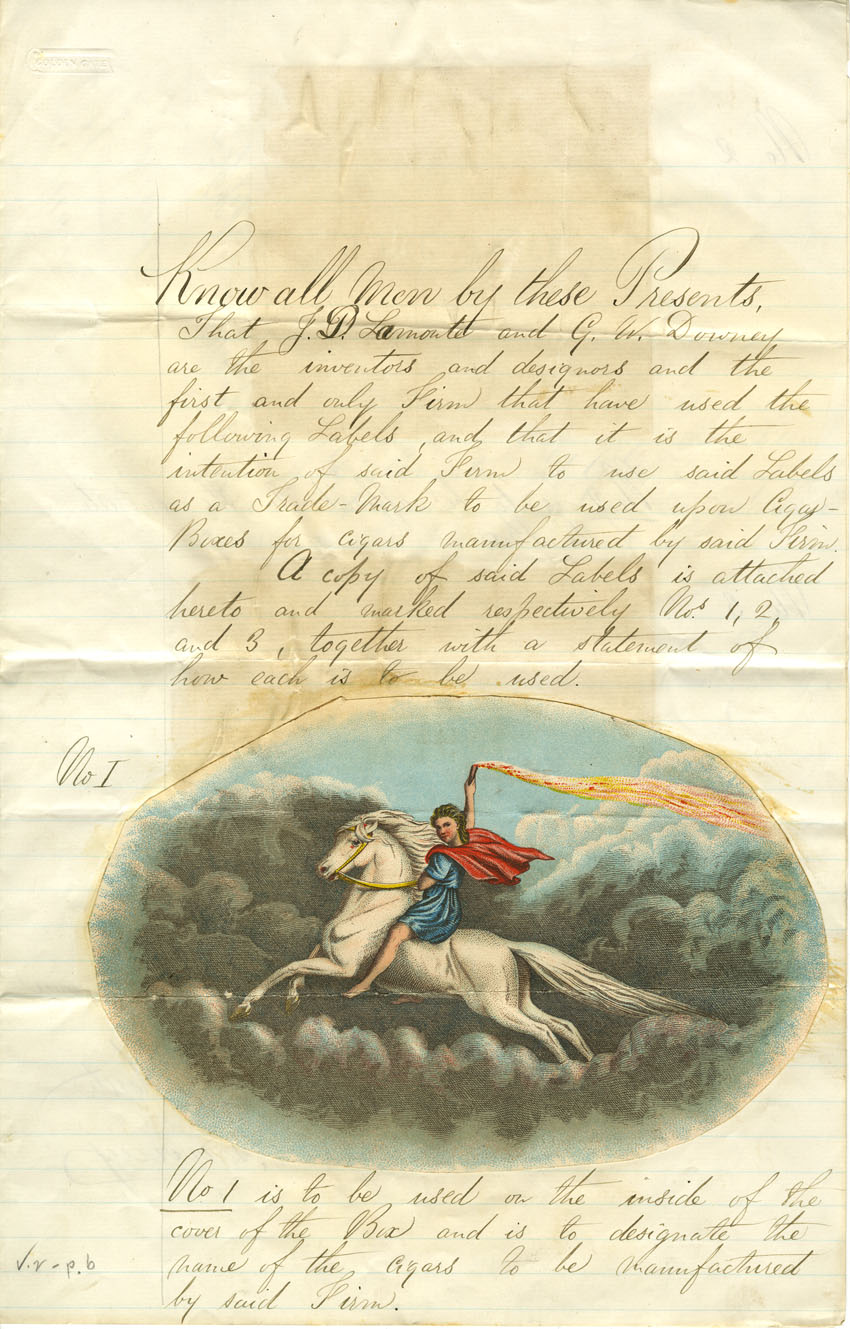 GOLDEN GATE
Know all Men by these Presents,
That J. P. Lamonte and G. W. Downey
are the inventors and designors and the
first and only Firm that have used the
following Labels, and that it is the
intention of said Firm to use said Labels
as a Trade-Mark to be used upon Cigar-
Boxes for cigars manufactured by said Firm.
A copy of said Labels is attached
hereto and marked respectively Nos. 1, 2,
and 3, together with a statement of
how each is to be used.
No I
No 1 is to be used on the inside of the
cover of the Box and is to designate the
name of the cigars to be manufactured
by said Firm.
v.r - p.b